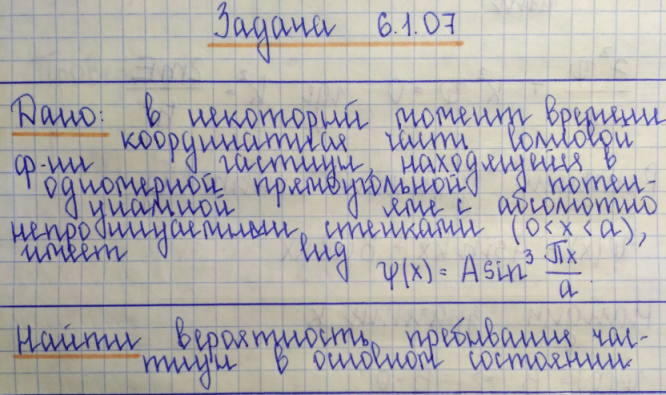 Задача 6.1.07
Дано: в некоторый момент времени
координатная часть волновой
ф-ии частицы, находящейся в
одномерной прямоугольной потен-
циальной яме с абсолютно
непроницаемыми стенками (0<x<a),
имеет вид ψ(x) = A sin³ πx/a.
Найти вероятность пребывания час-
тицы в основном состоянии.